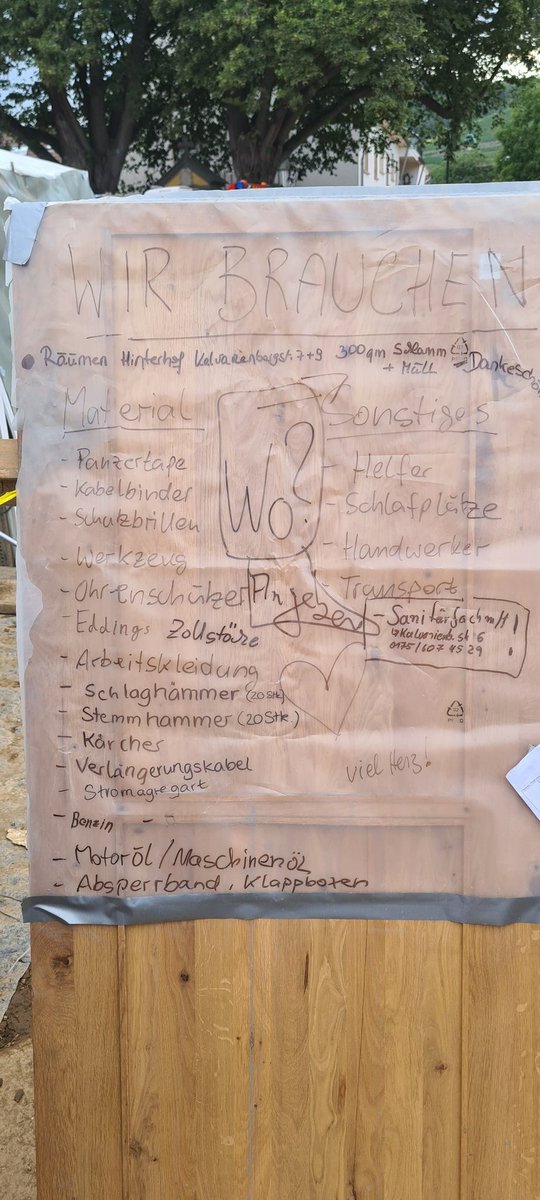 WIR BRAUCHEN
Räumen Hinterhof Kalvarienbergstr. 7+9 300qm Schlamm + Müll
Dankeschön
Material
- Panzertape
- Kabelbinder
- Schutzbrillen
- Werkzeug
- Ohrenschützer
- Eddings Zollstöcke
- Arbeitskleidung
- Schlaghämmer (20 Stk.)
- Stemmhammer (20 Stk.)
- Kärcher
- Verlängerungskabel
- Stromagregart
- Benzin
- Motoröl / Maschinenöl
- Absperrband, Klappboxen
Wo?
Sonstiges
- Helfer
- Schlafplätze
- Handwerker
- Transport
- Sanitärfach
Kalvarienb.str 6
0175/607 45 29
viel Herz!